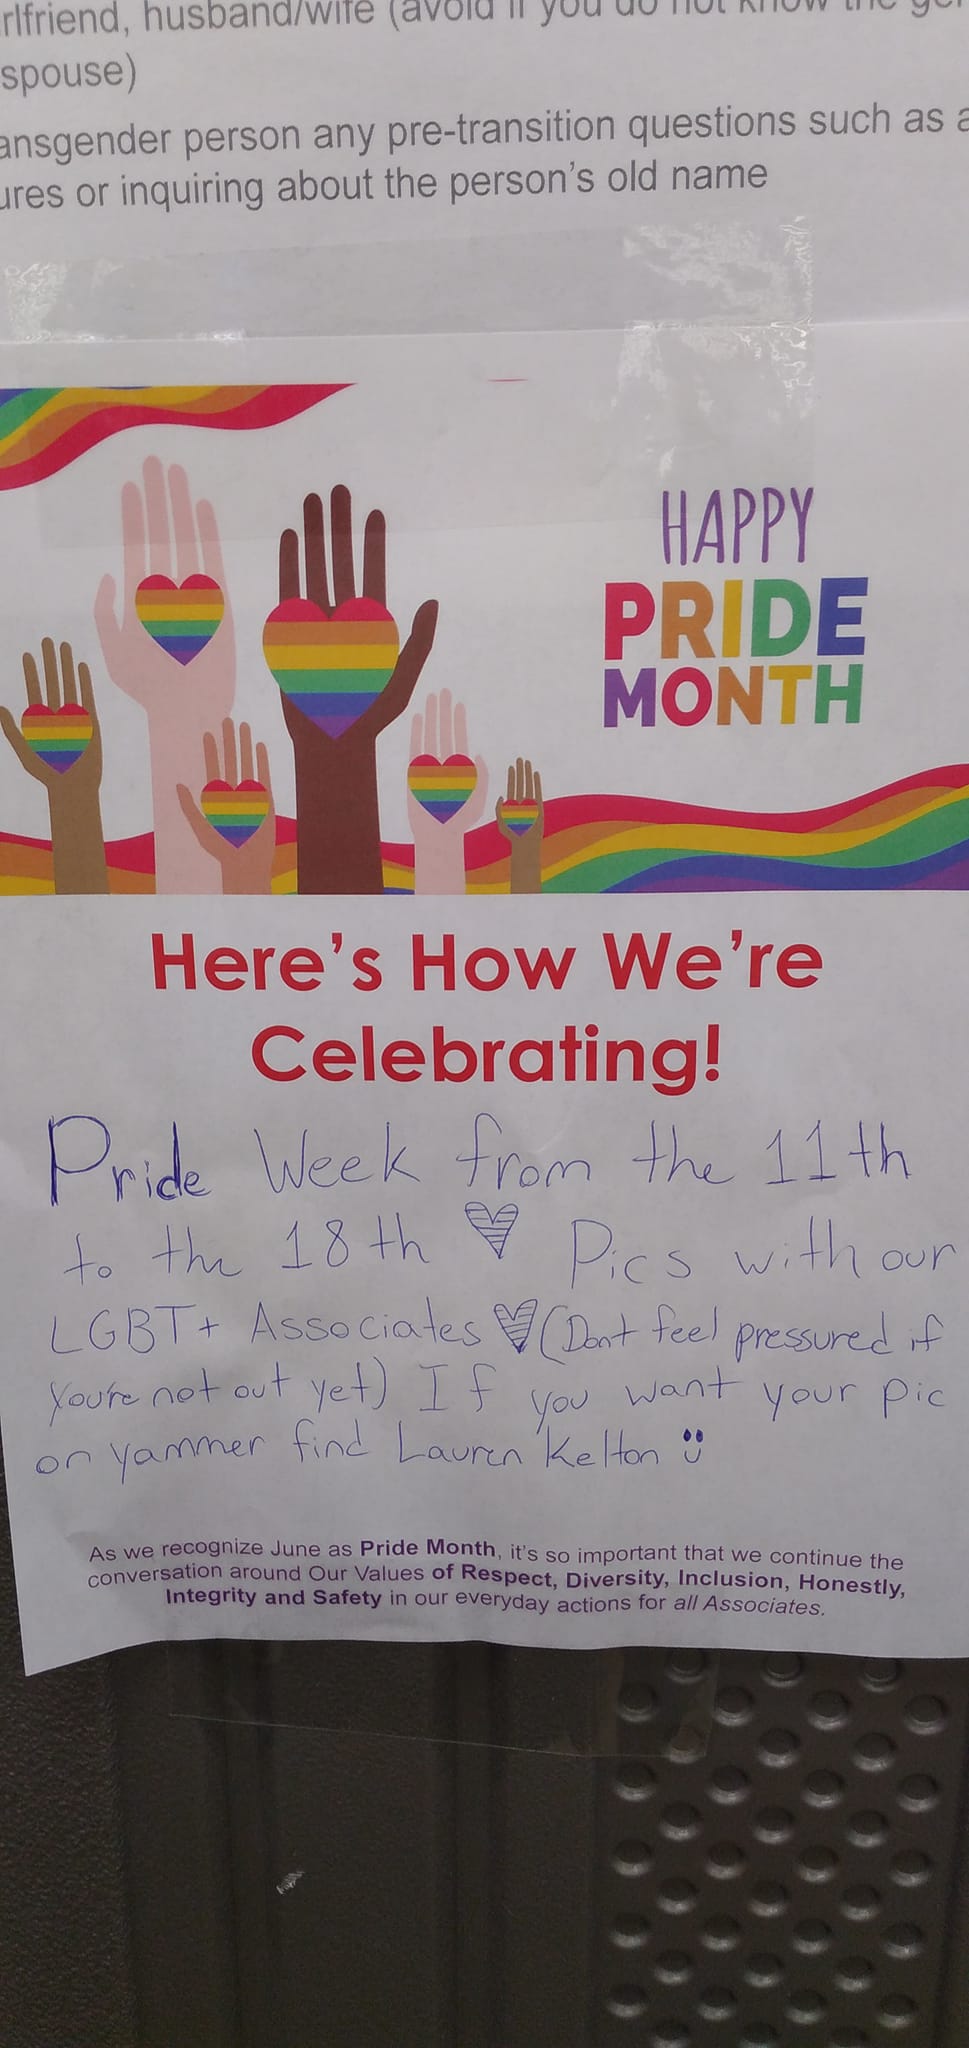 rlfriend, husband/wife (avoid if you do not know the
spouse)
ansgender person any pre-transition questions such as a
ures or inquiring about the person's old name
HAPPY
PRIDE
MONTH
Here's How We're
Celebrating!
Pride Week from the 11th
to the 18th Pics with our
LGBT+ Associates (Dont feel pressured if
you're not out yet) If you want your pic
on yammer find Lauren Kelton
As we recognize June as Pride Month, it's so important that we continue the
conversation around Our Values of Respect, Diversity, Inclusion, Honestly,
Integrity and Safety in our everyday actions for all Associates.